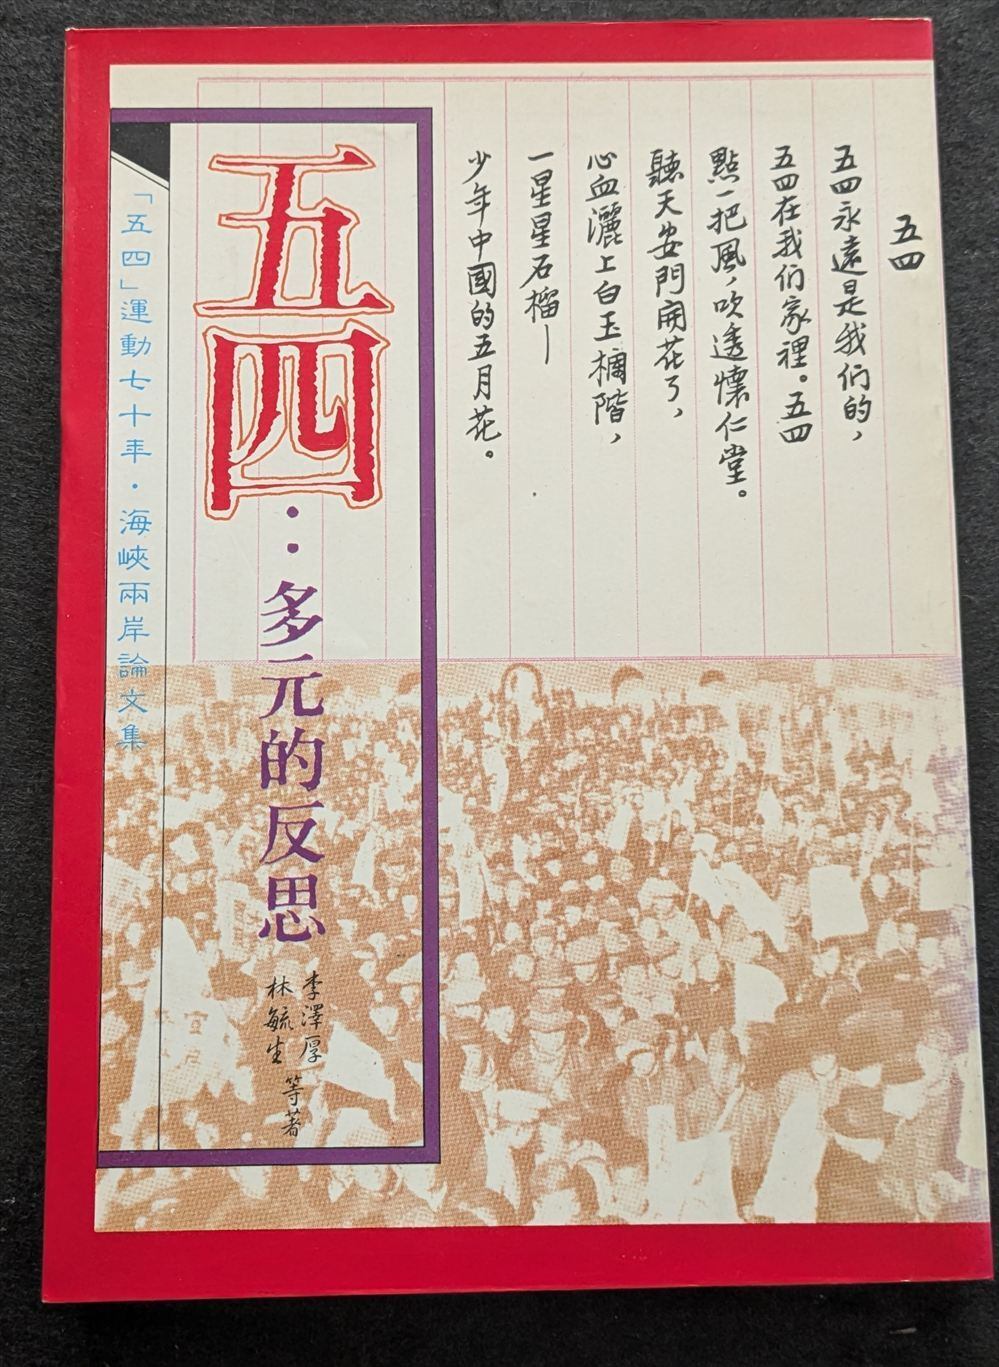 五四
五四永遠是我们的，
五四在我们家裡。五四
點一把風，吹透懷仁堂。
聽天安門開花了，
心血灑上白玉欄階，
一星星石榴—
少年中國的五月花。
五四：多元的反思
李澤厚
林毓生 等著
「五四」運動七十年·海峽兩岸論文集